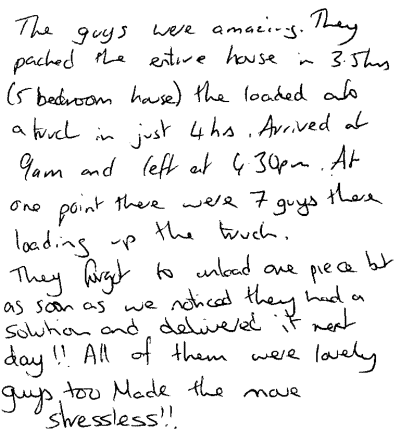 The guys were amazing. They
packed the entire house in 3.5hrs
(5 bedroom house) the loaded
a truck in just 4hs. Arrived at
9am and left at 4.30pm. At
one point there were 7 guys there
loading up the truck.
They forget to unload one piece bt
as soon as we noticed they had a
solution and delivered it next
day!! All of them were lovely
guys too Made the move
stressless!!